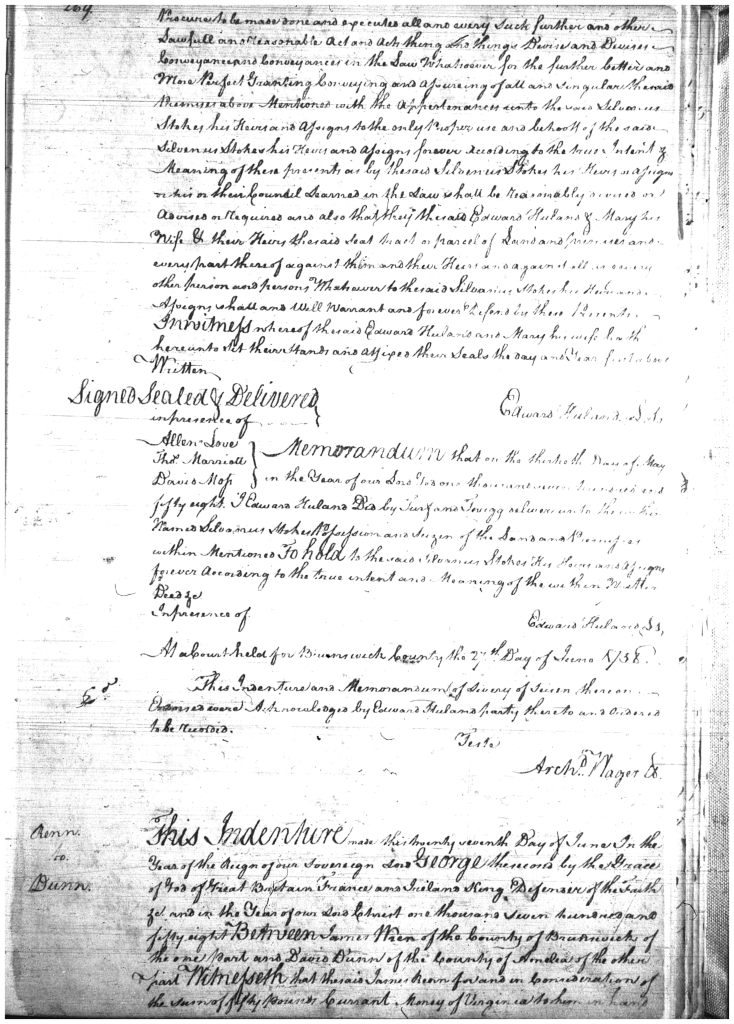 Procure to be made done and executed all and every Such further and other
Lawfull and reasonable Act and Acts thing and things Devise and Devises
Conveyance and Conveyances in the Law Whatsoever for the further better and
More Perfect Granting Conveying and Assureing of all and Singular the said
Premises above Mentioned with the Appertenances unto the said Silvanus
Stokes his Heirs and Assigns to the only Proper use and behoof of the said
Silvenus Stokes his Heirs and Assigns forever According to the true Intent &
Meaning of these presents as by the said Silvenus Stokes his Heirs or Assigns
or his or their Council Learned in the Law shall be reasonably devised or
Advised or required and also that they the said Edward Huland & Mary his
Wife & their Heirs the said Seat tract or parcel of Land and Premises and
every part thereof against them and their Heirs and against all & every
other person and persons Whatsoever to the said Silvanus Stokes his Heirs and
Assigns shall and Will Warrant and forever Defend by these Presents
In witness whereof the said Edward Huland and Mary his wife hath
hereunto Set their Hands and affixed their Seals the day and Year first above
Written
Signed Sealed & Delivered
in presence of
Edward Huland Ls
Allen Love
Thos. Marriott
David Moss
Memorandum that on the thirtieth Day of May
in the Year of our Lord God one thousand seven hundred and
fifty eight I Edward Huland Did by Turf and Twigg deliver unto the within
Named Silvanus Stokes Possession and Seizen of the Land and Premises
within Mentioned To hold to the said Silvanus Stokes His Heirs and Assigns
forever According to the true intent and Meaning of the within Written
Deed &c
In presence of
Edward Huland Ls,
At a Court held for Brunswick County the 27th. Day of June 1758.
This Indenture and Memorandum of Livery of Seisen thereon
Endorsed were Acknowledged by Edward Huland party thereto and ordered
to be recorded.
Teste
Archd. Wager
Renn.
to
Dunn.
This Indenture made this twenty seventh Day of June In the
Year of the Reign of our Sovereign Lord George the second by the Grace
of God of Great Britain France and Ireland King Defender of the Faith
&c. and in the Year of our Lord Christ one thousand Seven hundred and
fifty eight Between James Wren of the County of Brunswick of
the one part and David Dunn of the County of Amelia of the other
part Witnesseth that the said James Renn for and in Consideration of
the Sum of fifty pounds Currant Money of Virginia to him in hand